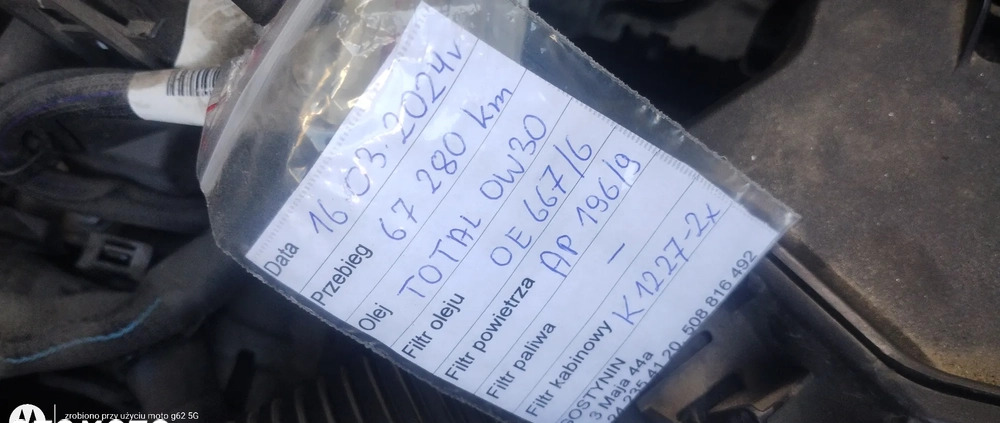 Data 16 03.2024r
Przebieg 67 280 km
Olej TOTAL 0W30
Filtr oleju OE 667/6
Filtr powietrza AP 196/9
Filtr paliwa –
Filtr kabinowy K1227-2x
GOSTYNIN
3 Maja 44a
24 235 41 20, 508 816 492
zrobiono przy użyciu moto g62 5G